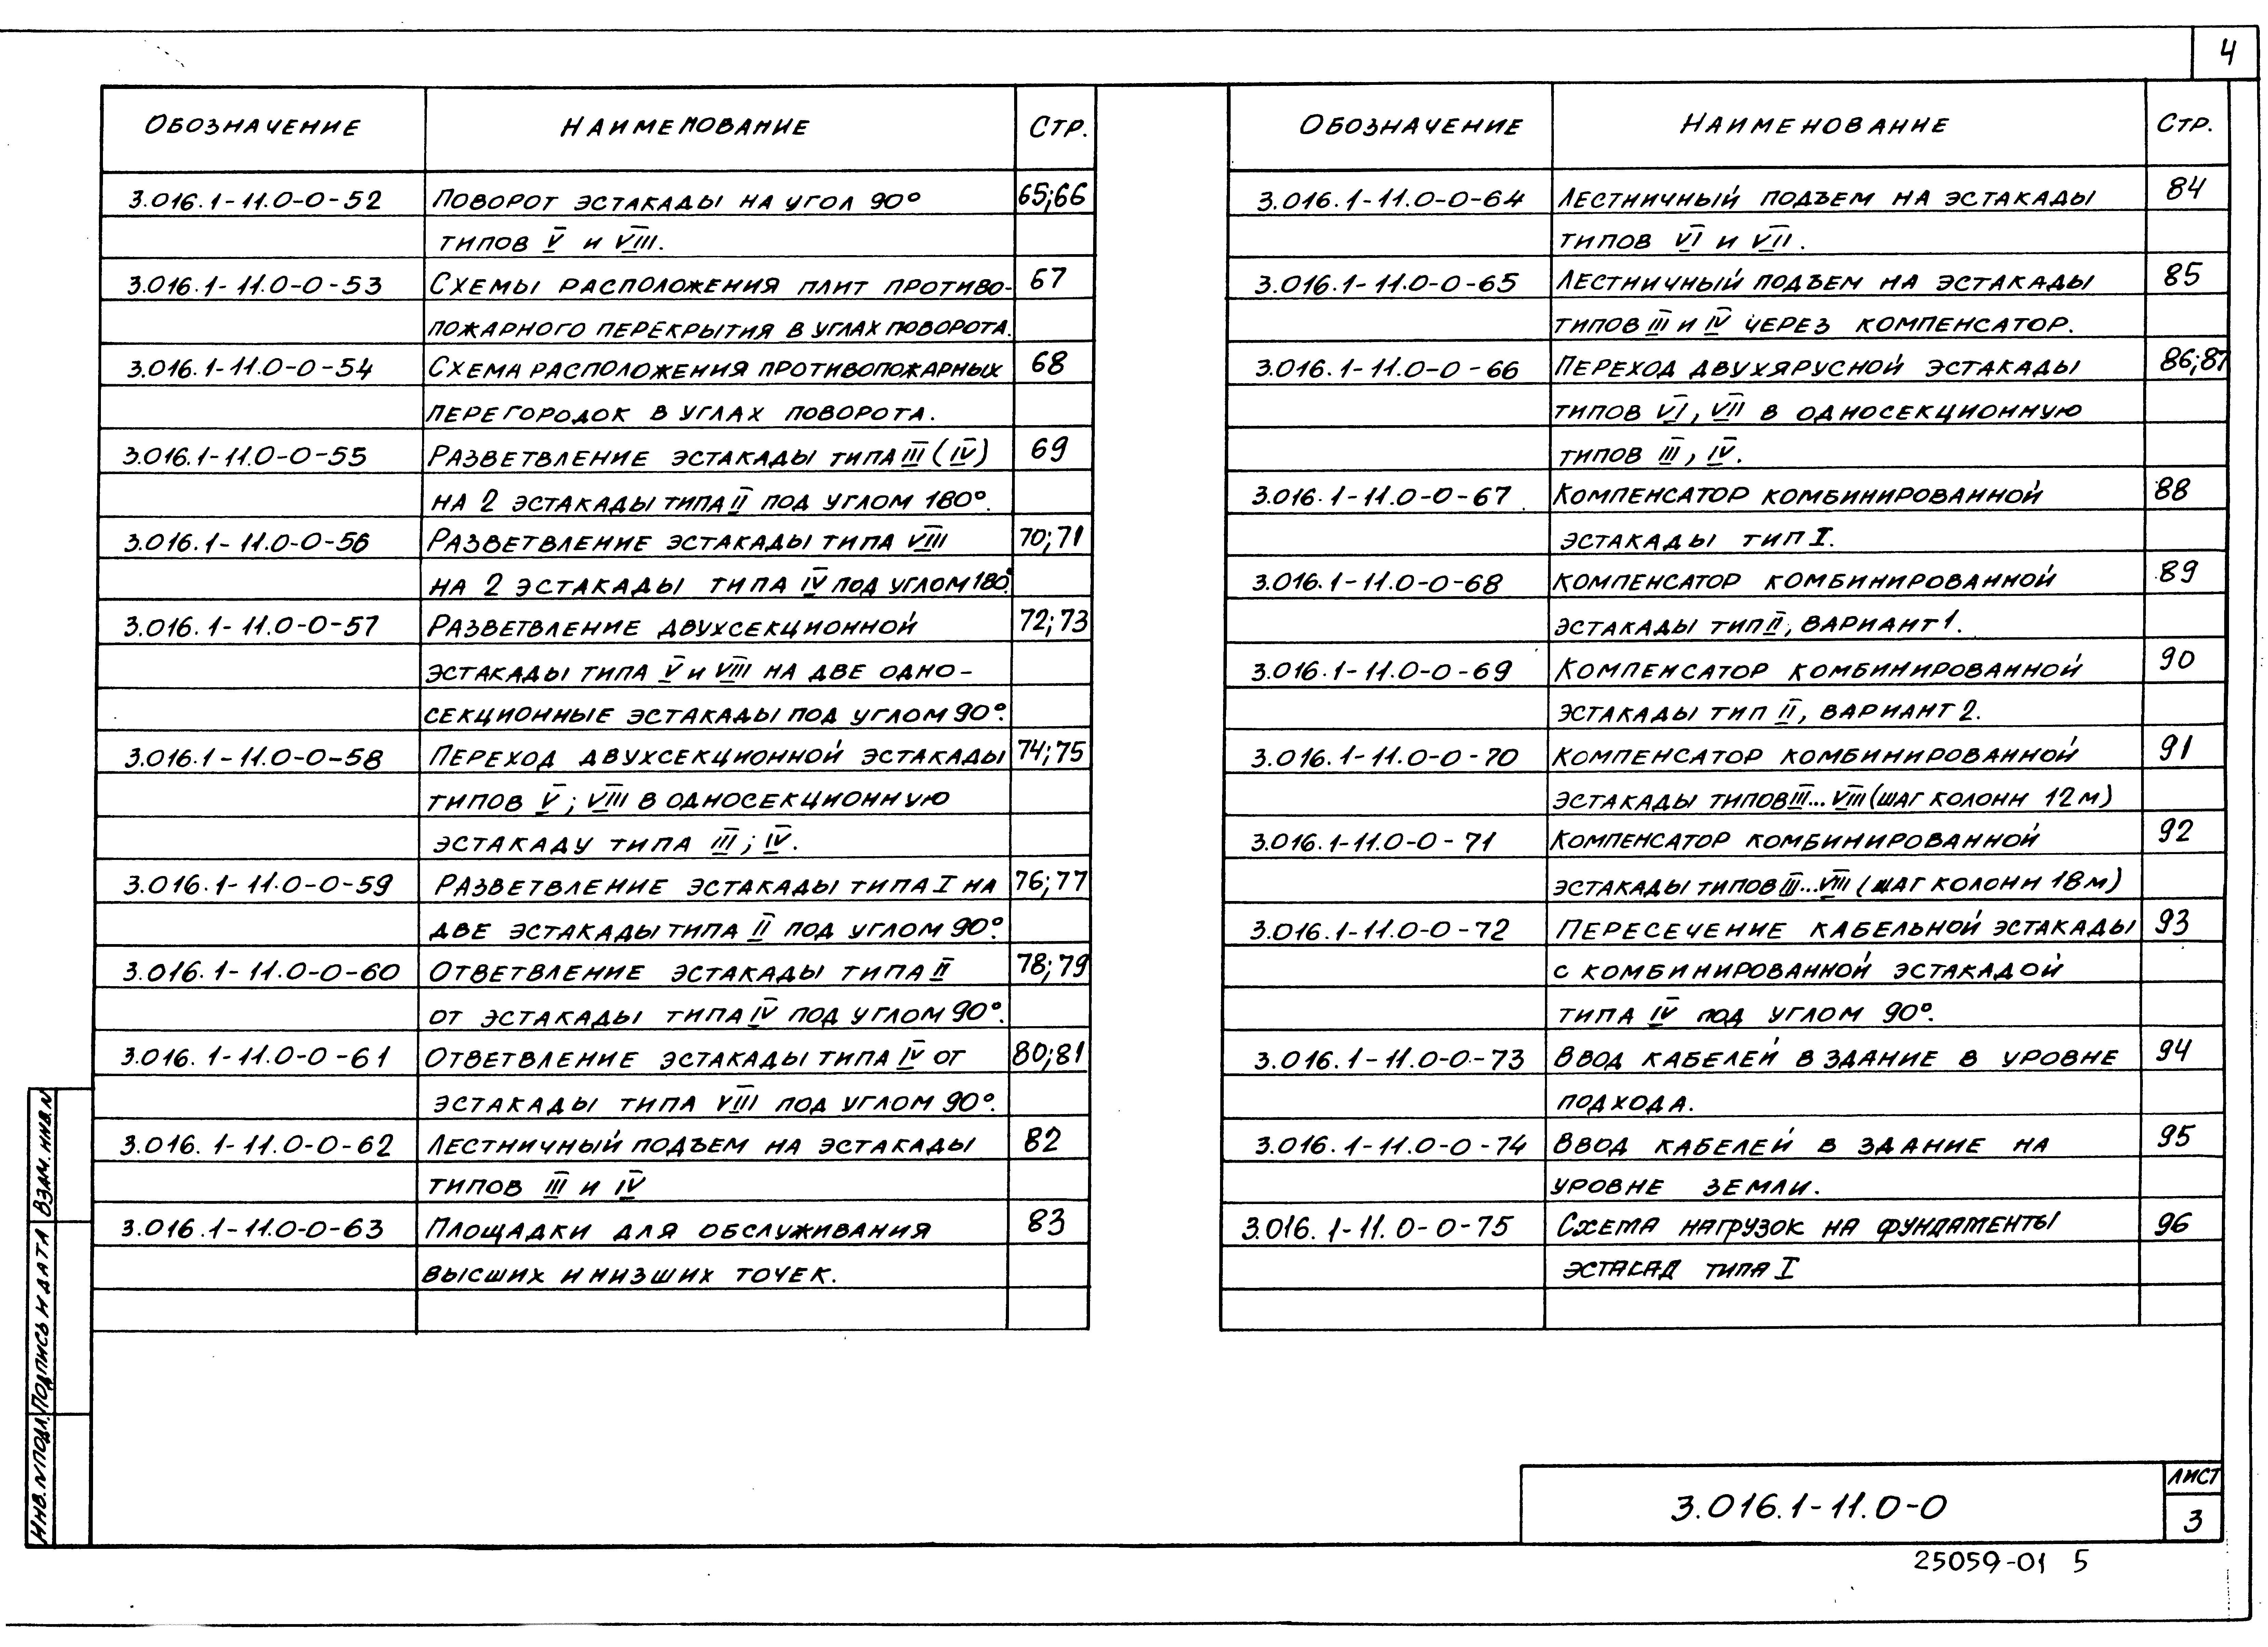 4
Обозначение Наименование Стр.
3.016.1-11.0-0-52 Поворот эстакады на угол 90° 65;66
типов V и VIII.
3.016.1-11.0-0-53 Схемы расположения плит противо- 67
пожарного перекрытия в углах поворота.
3.016.1-11.0-0-54 Схема расположения противопожарных 68
перегородок в углах поворота.
3.016.1-11.0-0-55 Разветвление эстакады типа III (IV) 69
на 2 эстакады типа II под углом 180°.
3.016.1-11.0-0-56 Разветвление эстакады типа VIII 70;71
на 2 эстакады типа IV под углом 180°.
3.016.1-11.0-0-57 Разветвление двухсекционной 72;73
эстакады типа V и VIII на две одно-
секционные эстакады под углом 90°.
3.016.1-11.0-0-58 Переход двухсекционной эстакады 74;75
типов V; VIII в односекционную
эстакаду типа III; IV.
3.016.1-11.0-0-59 Разветвление эстакады типа I на 76;77
две эстакады типа II под углом 90°.
3.016.1-11.0-0-60 Ответвление эстакады типа II 78;79
от эстакады типа IV под углом 90°.
3.016.1-11.0-0-61 Ответвление эстакады типа IV от 80;81
эстакады типа VIII под углом 90°.
3.016.1-11.0-0-62 Лестничный подъем на эстакады 82
типов III и IV
3.016.1-11.0-0-63 Площадки для обслуживания 83
высших и низших точек.
Обозначение Наименование Стр.
3.016.1-11.0-0-64 Лестничный подъем на эстакады 84
типов VI и VII.
3.016.1-11.0-0-65 Лестничный подъем на эстакады 85
типов III и IV через компенсатор.
3.016.1-11.0-0-66 Переход двухярусной эстакады 86;87
типов VI, VII в односекционную
типов III, IV.
3.016.1-11.0-0-67 Компенсатор комбинированной 88
эстакады тип I.
3.016.1-11.0-0-68 Компенсатор комбинированной 89
эстакады тип II, вариант 1.
3.016.1-11.0-0-69 Компенсатор комбинированной 90
эстакады тип II, вариант 2.
3.016.1-11.0-0-70 Компенсатор комбинированной 91
эстакады типов III...VIII (шаг колонн 12м)
3.016.1-11.0-0-71 Компенсатор комбинированной 92
эстакады типов III...VIII (шаг колонн 18м)
3.016.1-11.0-0-72 Пересечение кабельной эстакады 93
с комбинированной эстакадой
типа IV под углом 90°.
3.016.1-11.0-0-73 Ввод кабелей в здание в уровне 94
подхода.
3.016.1-11.0-0-74 Ввод кабелей в здание на 95
уровне земли.
3.016.1-11.0-0-75 Схема нагрузок на фундаменты 96
эстакад типа I
Инв. N подл. Подпись и дата Взам. инв. N
3.016.1-11.0-0
Лист
3
25059-01 5